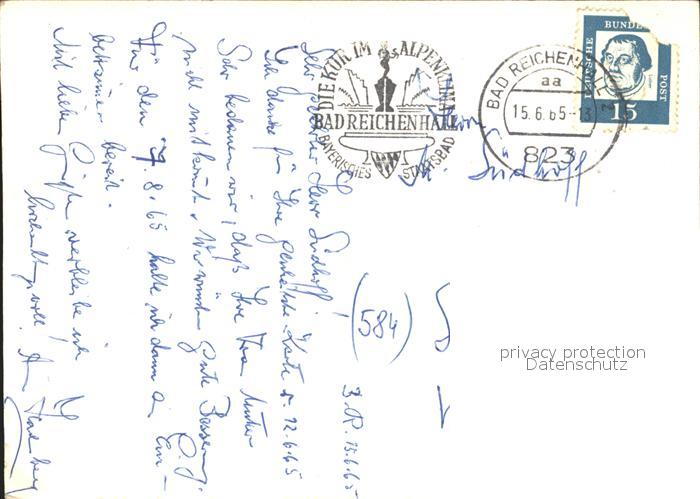 DIE KUR IM ALPENKLIMA
BAD REICHENHALL
BAYERISCHES STAATSBAD
BAD REICHENHALL 2
aa
15.6.65-13
823
DEUTSCHE BUNDESPOST
Luther
15
Herrn
Südhoff
(584)
B.R. 13.6.65
Sehr geehrter Herr Südhoff!
Ich danke für Ihre Karte v. 12.6.65
Sehr bedauern wir, daß Ihre Frau
nicht mitkommt. Wir wünschen Gute Besserung.
Für den 7.8.65 halte ich dann ein Ein-
bettzimmer bereit.
Mit lieben Grüßen verbleibe ich
hochachtungsvoll!
privacy protection
Datenschutz